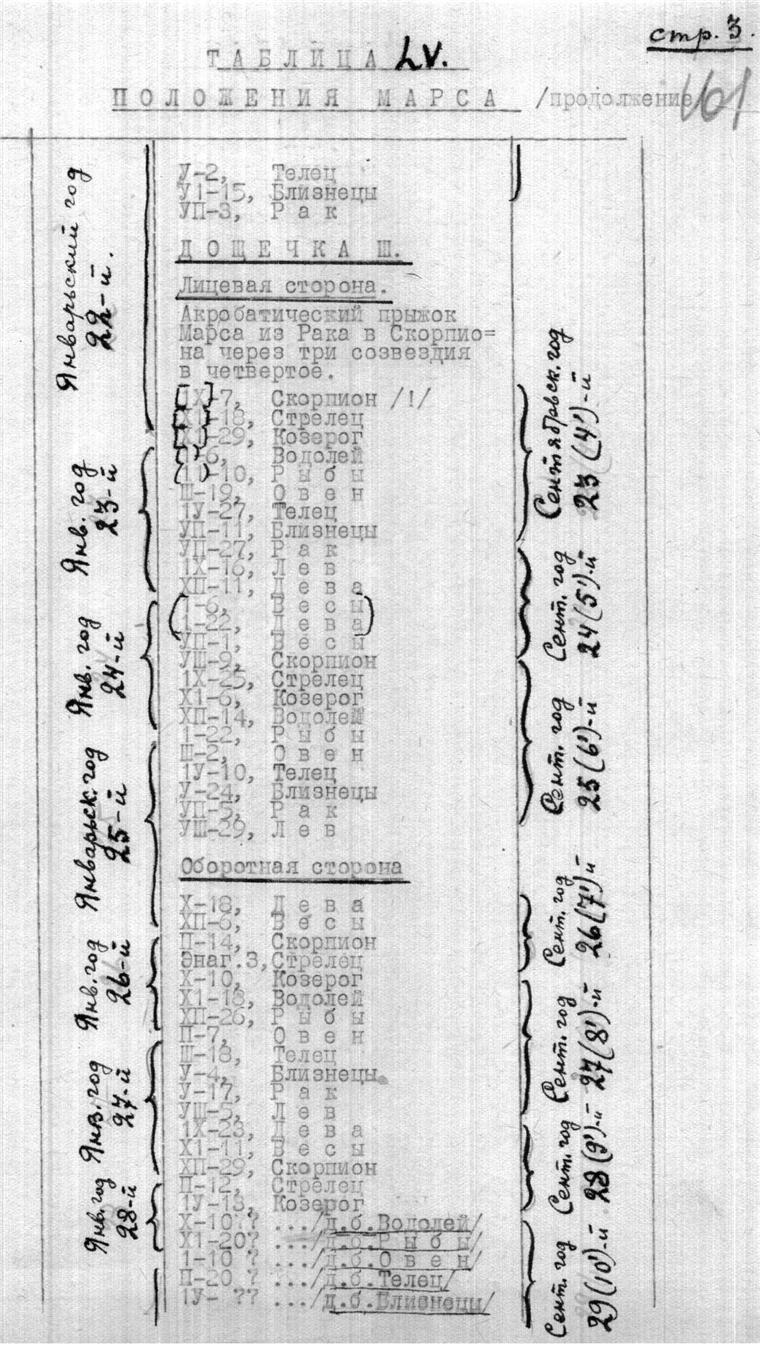 стр. 3.
ТАБЛИЦА LV.
ПОЛОЖЕНИЯ МАРСА /продолжение/
161
У-2, Телец
У1-15, Близнецы
УП-3, Рак
ДОЩЕЧКА Ш.
Лицевая сторона.
Акробатический прыжок
Марса из Рака в Скорпио=
на через три созвездия
в четвертое.
1Х-7, Скорпион /!/
Х1-18, Стрелец
ХП-29, Козерог
1-6, Водолей
11-10, Рыбы
Ш-19, Овен
1У-27, Телец
УП-11, Близнецы
УП-27, Рак
1Х-16, Лев
ХП-11, Дева
1-6, Весы
1-22, Дева
УП-1, Весы
УШ-9, Скорпион
1Х-25, Стрелец
Х1-6, Козерог
ХП-14, Водолей
1-22, Рыбы
Ш-2, Овен
1У-10, Телец
У-24, Близнецы
УП-5, Рак
УШ-29, Лев
Оборотная сторона
Х-18, Дева
ХП-6, Весы
П-14, Скорпион
Энаг.3, Стрелец
Х-10, Козерог
Х1-18, Водолей
ХП-26, Рыбы
П-7, Овен
Ш-18, Телец
У-4, Близнецы
У-17, Рак
УШ-5, Лев
1Х-23, Дева
Х1-11, Весы
ХП-29, Скорпион
П-12, Стрелец
1У-13, Козерог
Х-10?? .../д.б.Водолей/
Х1-20? .../д.б.Рыбы/
1-10 ? .../д.б.Овен/
П-20 ? .../д.б.Телец/
1У- ?? .../д.б.Близнецы/
Январьский год
22-й.
Янв. год
23-й
Янв. год
24-й
Январьск. год
25-й
Янв. год
26-й
Янв. год
27-й
Янв. год
28-й
Сентябрьск. год
23 (4')-й
Сент. год
24 (5')-й
Сент. год
25 (6')-й
Сент. год
26 (7')-й
Сент. год
27 (8')-й
Сент. год
28 (9')-й
Сент. год
29 (10')-й